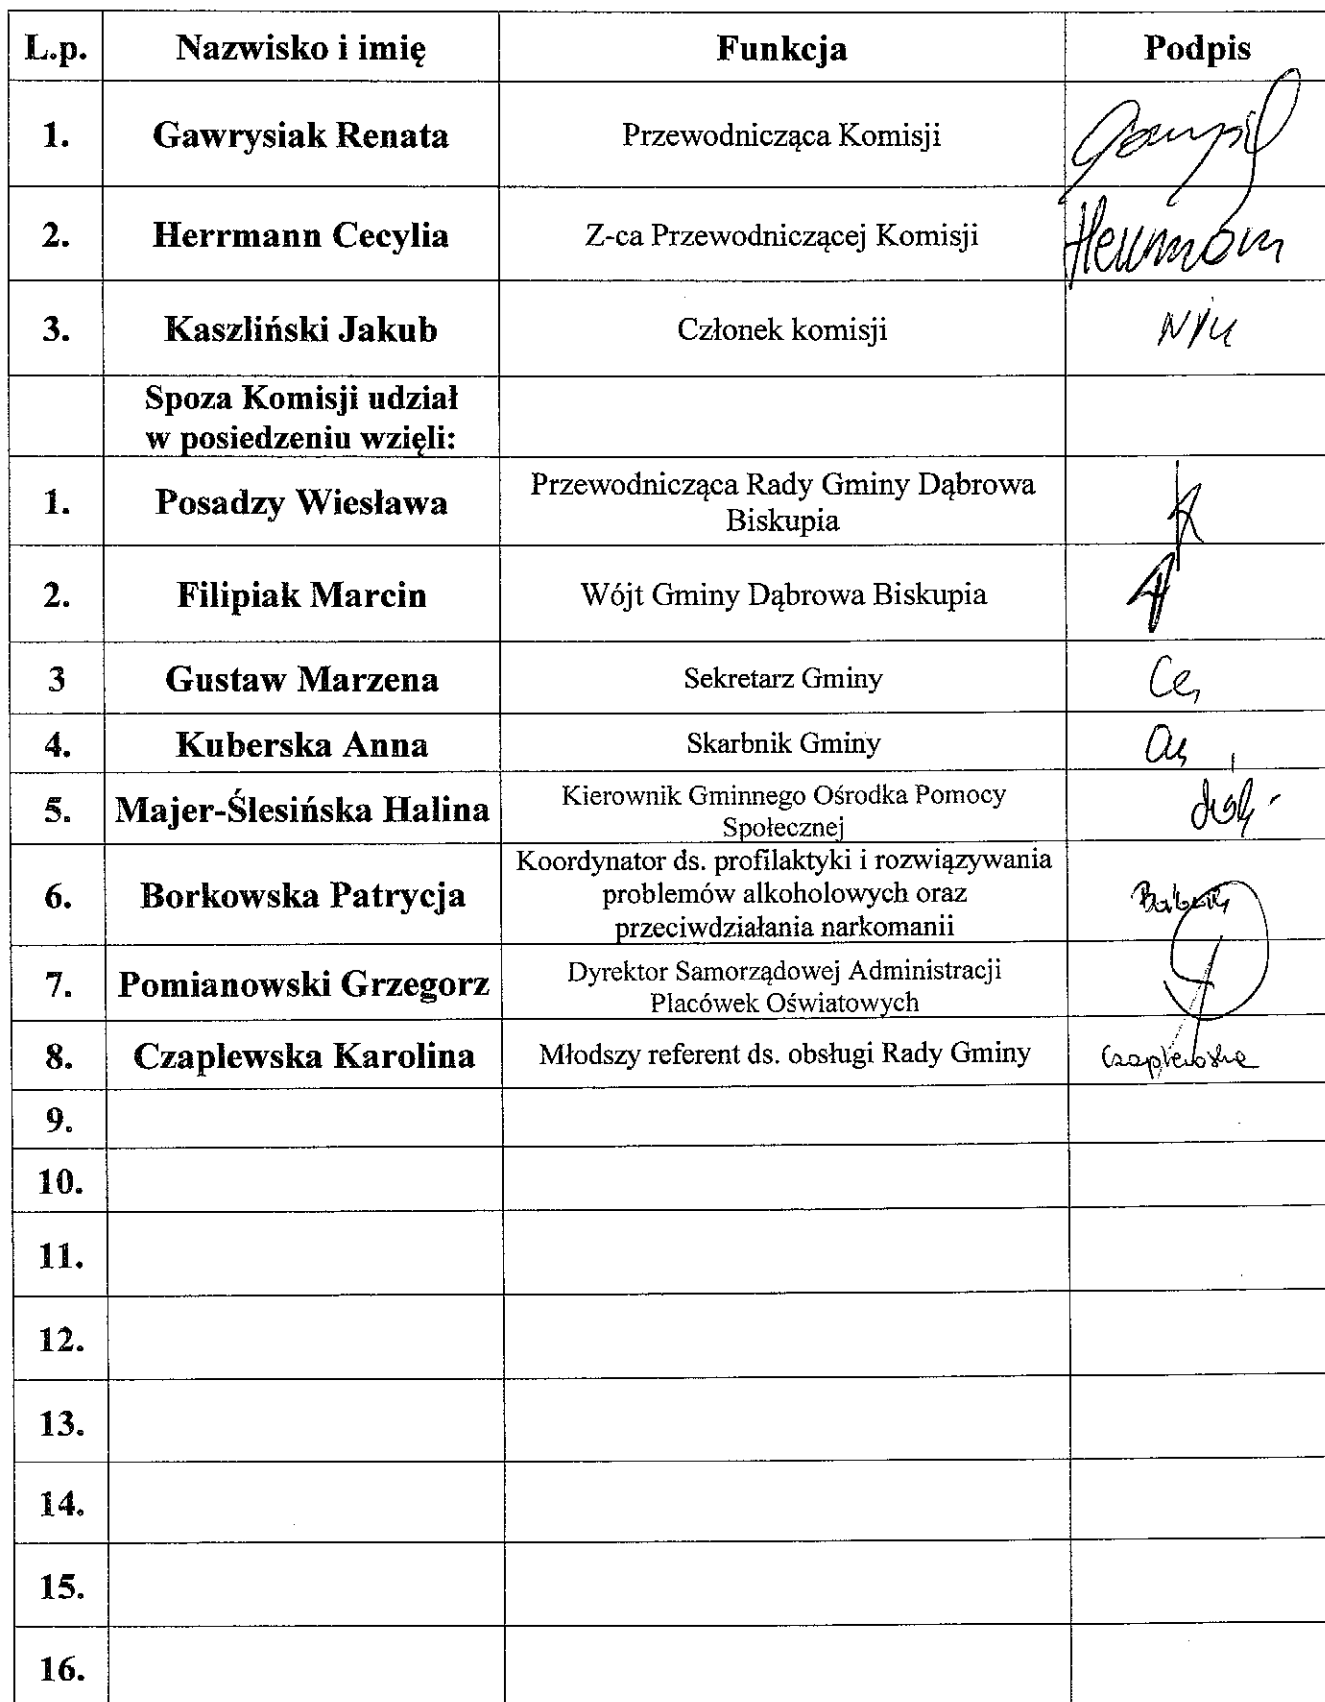 L.p. Nazwisko i imię Funkcja Podpis
1. Gawrysiak Renata Przewodnicząca Komisji
2. Herrmann Cecylia Z-ca Przewodniczącej Komisji Herrmann
3. Kaszliński Jakub Członek komisji
Spoza Komisji udział
w posiedzeniu wzięli:
1. Posadzy Wiesława Przewodnicząca Rady Gminy Dąbrowa
Biskupia
2. Filipiak Marcin Wójt Gminy Dąbrowa Biskupia
3 Gustaw Marzena Sekretarz Gminy
4. Kuberska Anna Skarbnik Gminy
5. Majer-Ślesińska Halina Kierownik Gminnego Ośrodka Pomocy
Społecznej
6. Borkowska Patrycja Koordynator ds. profilaktyki i rozwiązywania
problemów alkoholowych oraz
przeciwdziałania narkomanii
7. Pomianowski Grzegorz Dyrektor Samorządowej Administracji
Placówek Oświatowych
8. Czaplewska Karolina Młodszy referent ds. obsługi Rady Gminy Czaplewska
9.
10.
11.
12.
13.
14.
15.
16.